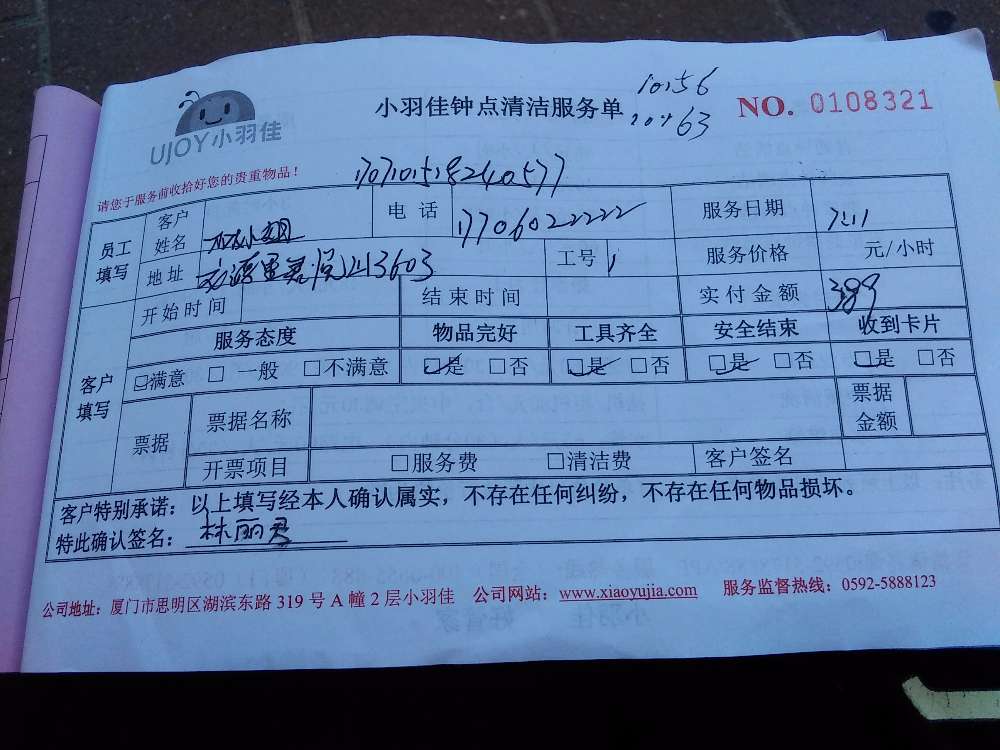 小羽佳钟点清洁服务单
10:56
63
NO. 0108321
UJOY小羽佳
请您于服务前收拾好您的贵重物品！
员工填写 客户姓名 电话 17706022222 服务日期
地址 3603 工号 1 服务价格 元/小时
客户填写 开始时间 结束时间 实付金额 389
服务态度 物品完好 工具齐全 安全结束 收到卡片
□满意 □一般 □不满意 □是 □否 □是 □否 □是 □否 □是 □否
票据 票据名称 票据金额
开票项目 □服务费 □清洁费 客户签名
客户特别承诺：以上填写经本人确认属实，不存在任何纠纷，不存在任何物品损坏。
特此确认签名：林丽君
公司地址：厦门市思明区湖滨东路 319 号 A 幢 2 层小羽佳 公司网站：www.xiaoyujia.com 服务监督热线：0592-5888123